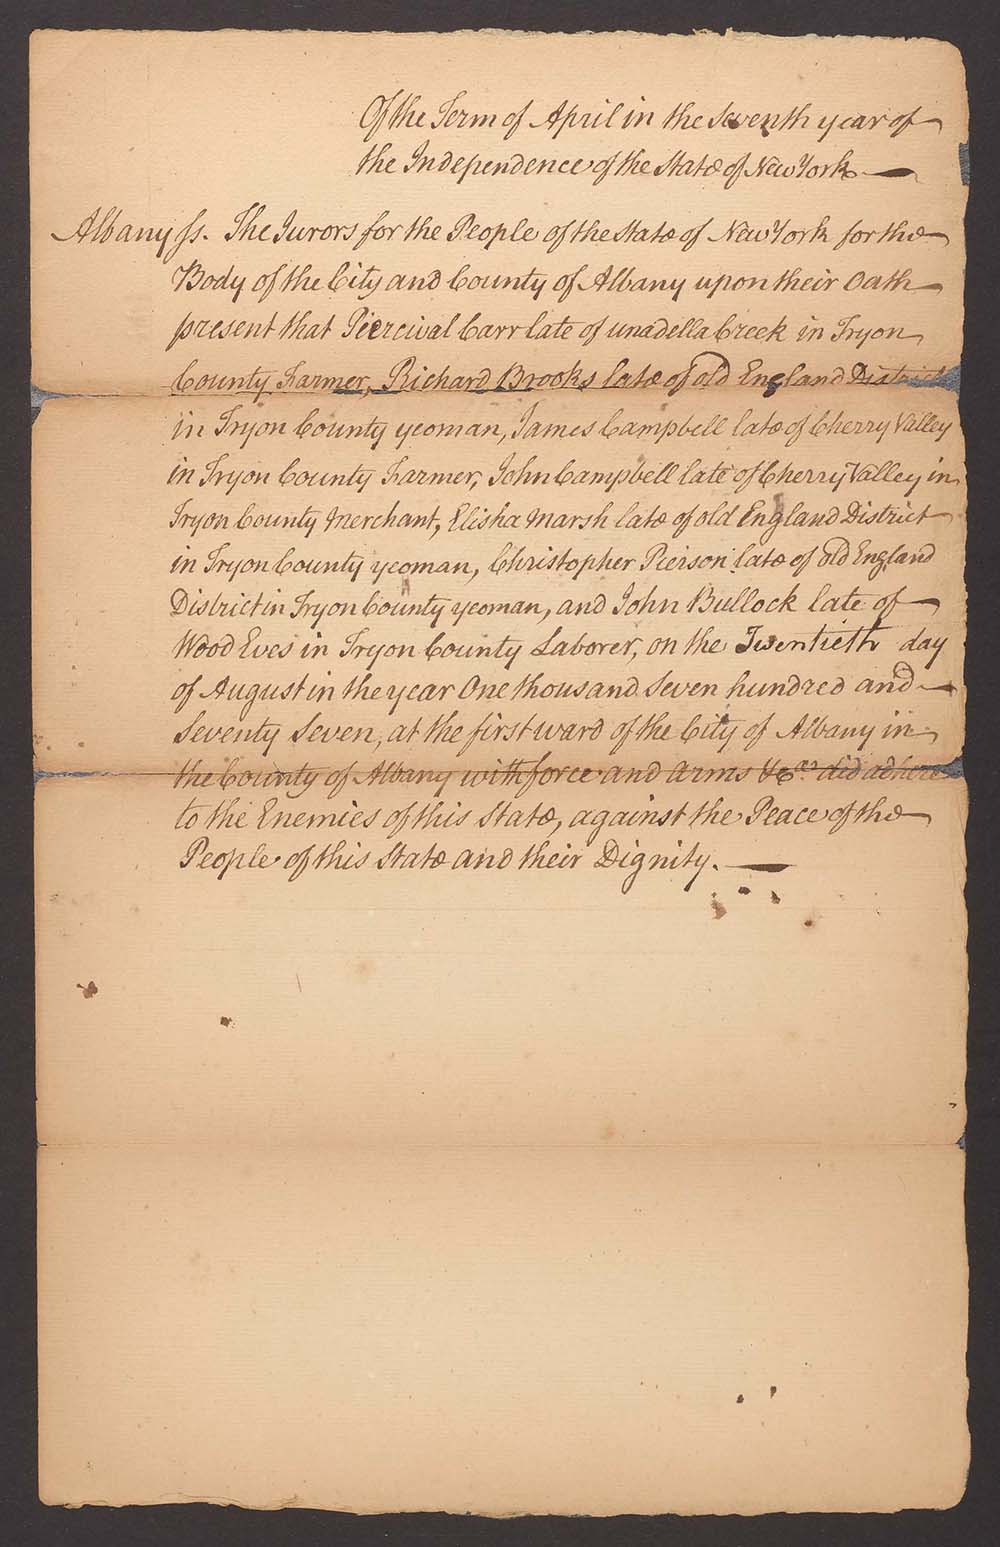 Of the Term of April in the Seventh year of
the Independence of the State of New York
Albany ss. The Jurors for the People of the State of New York for the
Body of the City and County of Albany upon their Oath
present that Piercival Carr late of unadella Creek in Tryon
County Farmer, Richard Brooks late of old England District
in Tryon County yeoman, James Campbell late of Cherry Valley
in Tryon County Farmer, John Campbell late of Cherry Valley in
Tryon County Merchant, Elisha Marsh late of old England District
in Tryon County yeoman, Christopher Pierson late of old England
District in Tryon County yeoman, and John Bullock late of
Wood Eves in Tryon County Laborer, on the Twentieth day
of August in the year One thousand Seven hundred and
Seventy Seven, at the first ward of the City of Albany in
the County of Albany with force and Arms &ca did adhere
to the Enemies of this State, against the Peace of the
People of this State and their Dignity.